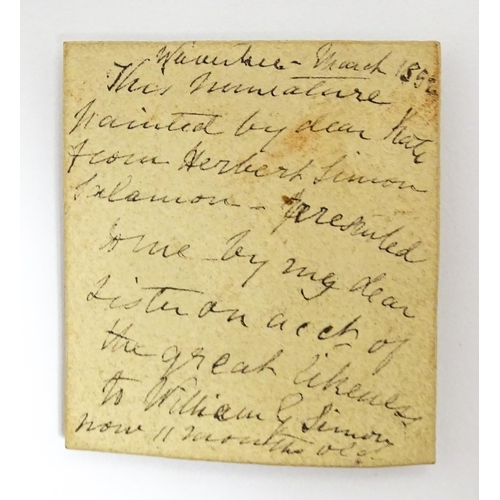 Wavertree - March 185
This miniature
painted by dear Kate
from Herbert Simon
Salamon - presented
to me - by my dear
sister on acct. of
the great likeness
to William G Simon
now 11 months old.